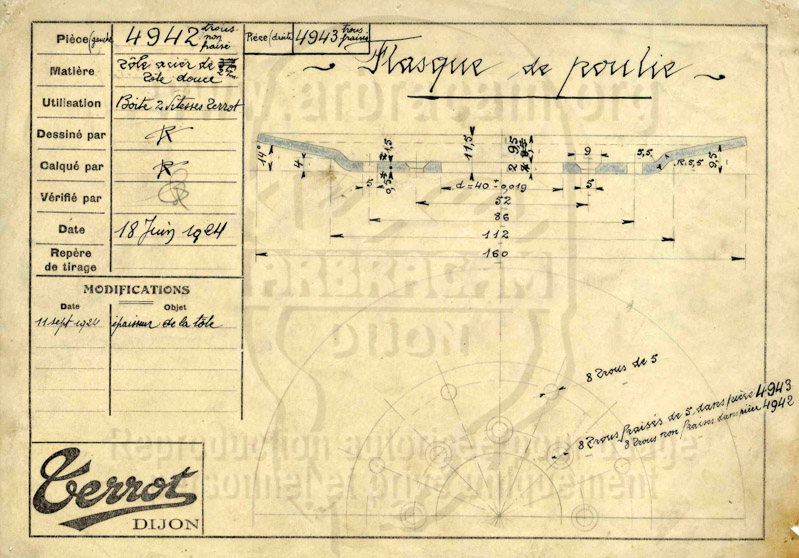 Pièce (gauche 4942 trous non fraisé
Pièce (droite 4943 trous fraisés
Flasque de poulie
Matière Tôle acier de
Tôle douce
Utilisation Boite 2 Vitesses Terrot
Dessiné par R
Calqué par R
Vérifié par
Date 18 Juin 1924
Repère
de tirage
MODIFICATIONS
Date Objet
11 sept 1924 épaisseur de la tôle
14° 4 1,5 0,5 5 11,5 9,5 2 9 5 5,5 R.5,5 9,5
d=40 + 0,019
52
86
112
160
8 Trous de 5
8 Trous fraisés de 5, dans pièce 4943
8 Trous non fraisés dans pièce 4942
Terrot
DIJON
www.arbracam.org
ARBRACAM
DIJON
Reproduction autorisée pour usage
personnel et privé uniquement